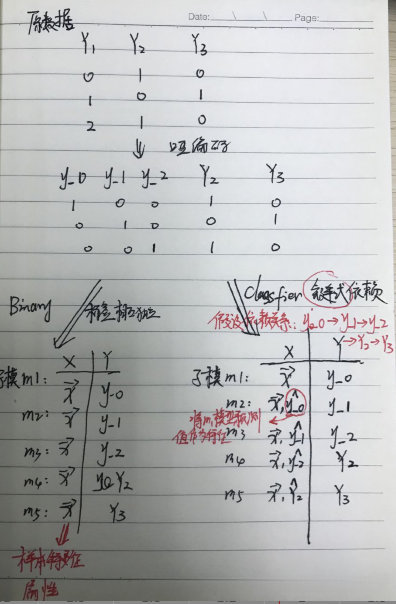 原数据
Date: Page:
Y₁ Y₂ Y₃
0 1 0
1 0 1
2 1 0
哑编码
y_0 y_1 y_2 Y₂ Y₃
1 0 0 1 0
0 1 0 0 1
0 0 1 1 0
Binary
标签相互独立
X Y
子模m1: x y_0
m2: x y_1
m3: x y_2
m4: x Y₂
m5: x Y₃
样本特征
属性
Classfier 链式依赖
假设依赖关系: y_0→y_1→y_2
→Y₂→Y₃
X Y
子模m1: x y_0
m2: x, ŷ_0 y_1
将m1模型预测
值作为特征
m3 x, ŷ_1 y_2
m4 x, ŷ_2 Y₂
m5 x, Ŷ₂ Y₃